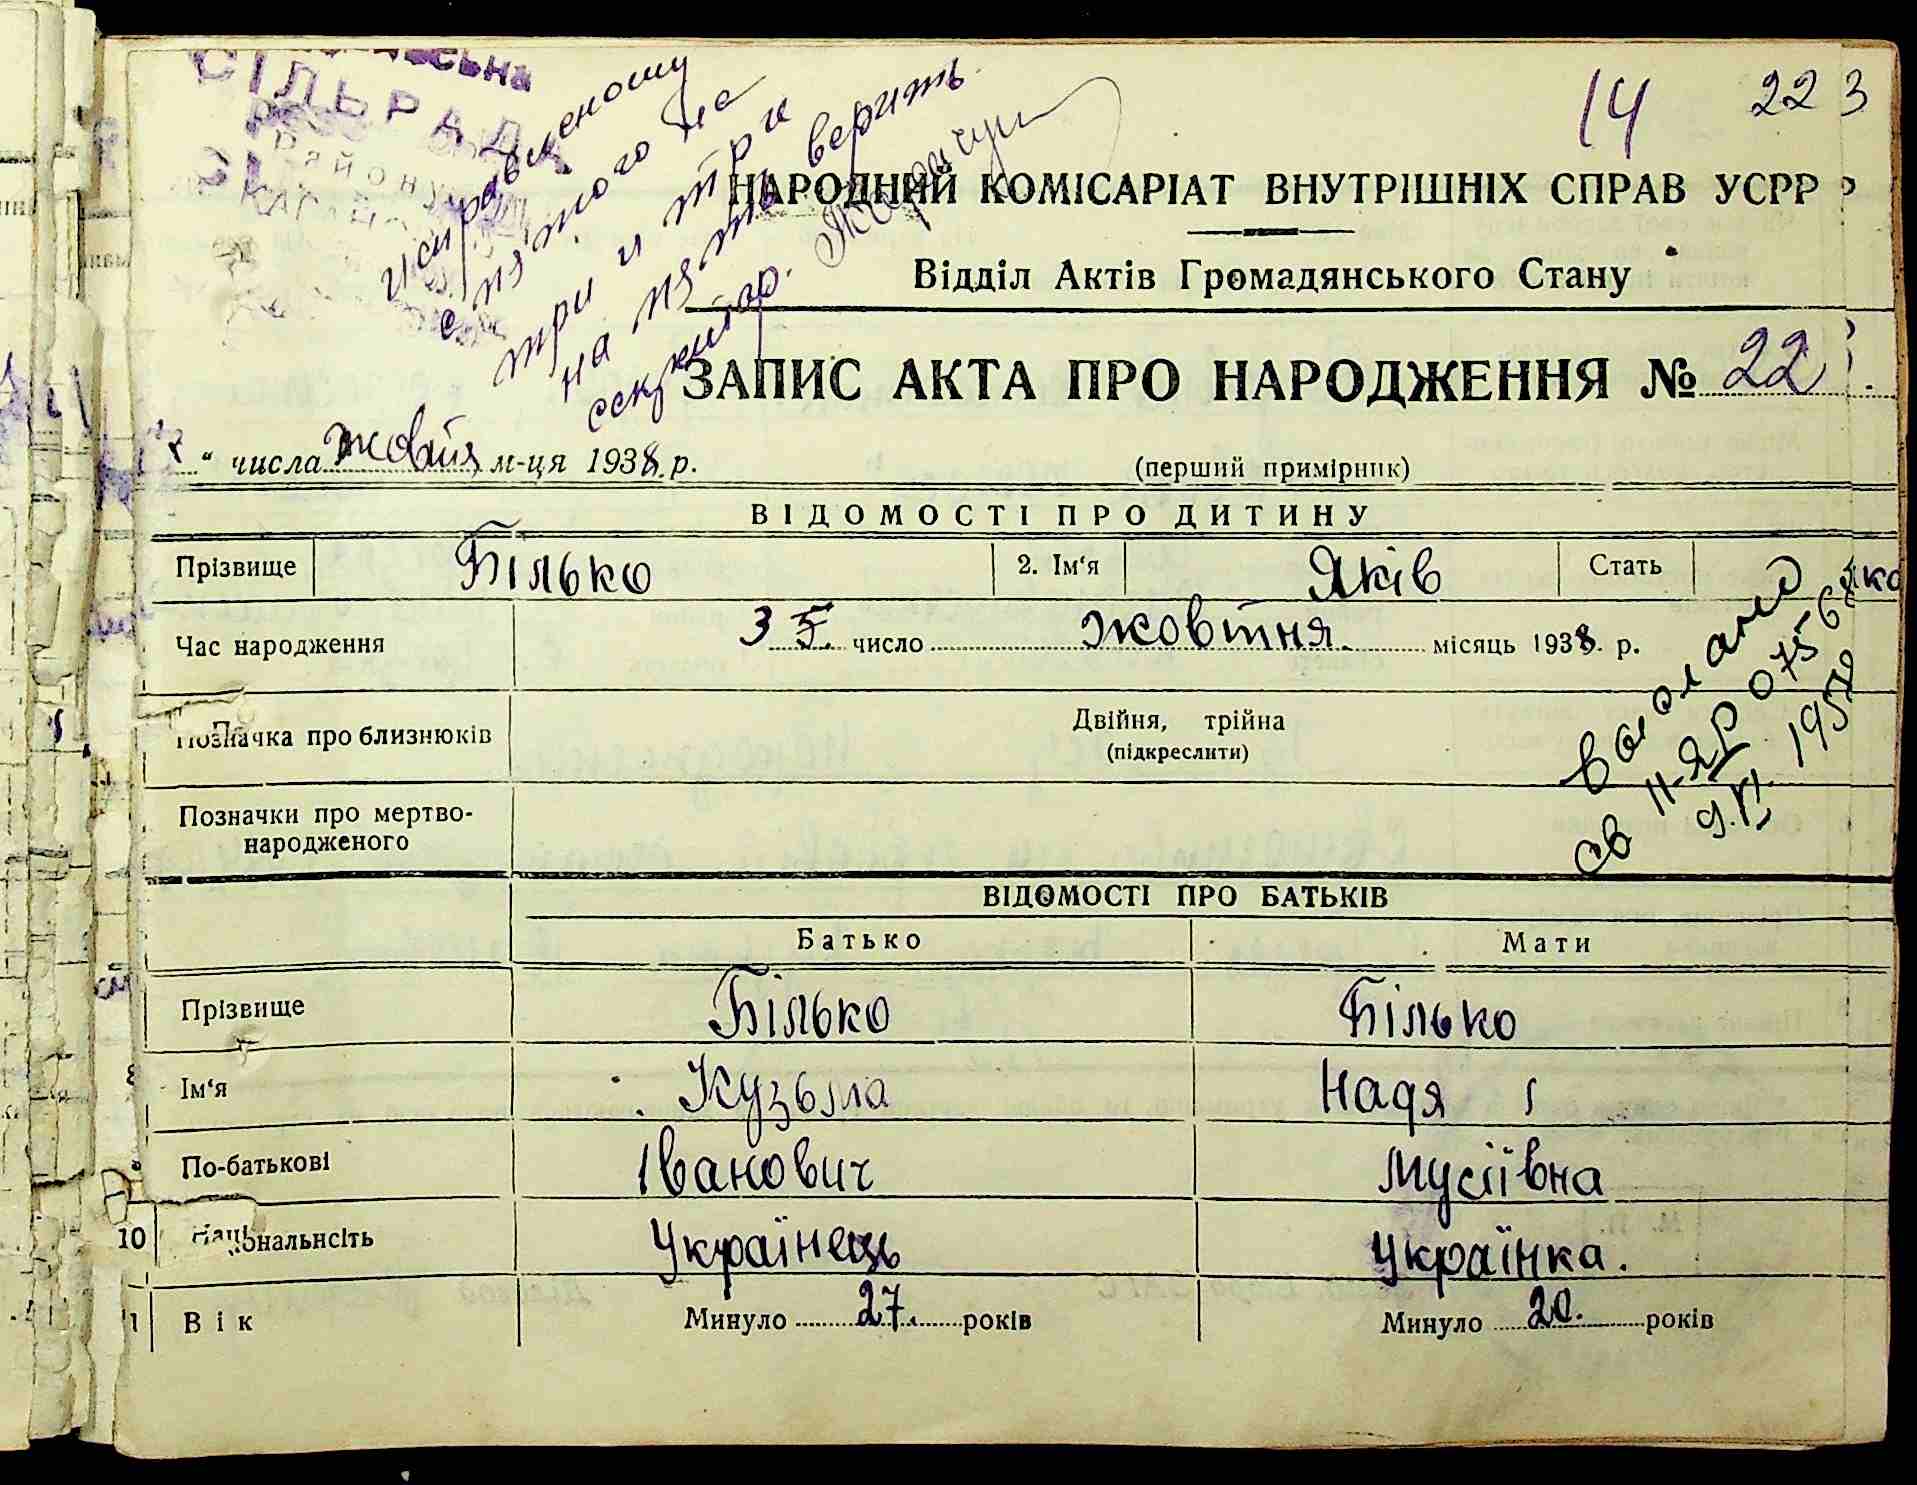 СІЛЬРАДА
району
14 22 3
исправленому
с п'ятого на
три и три
на п'ять верить
секритар.
НАРОДНИЙ КОМІСАРІАТ ВНУТРІШНІХ СПРАВ УСРР
Відділ Актів Громадянського Стану
ЗАПИС АКТА ПРО НАРОДЖЕННЯ № 22
7 " числа жовтня м-ця 1938 р.
(перший примірник)
ВІДОМОСТІ ПРО ДИТИНУ
Прізвище Білько 2. Ім'я Яків Стать
Час народження 3 5 число жовтня місяць 1938 р.
Позначка про близнюків Двійня, трійна
(підкреслити)
Позначки про мертво-
народженого
св II-ЯР 075
9.VI. 1957
ВІДОМОСТІ ПРО БАТЬКІВ
Батько Мати
Прізвище Білько Білько
Ім'я Кузьма Надя
По-батькові Іванович Мусіївна
10 Національнсіть Українець Українка.
Вік Минуло 27. років Минуло 20. років